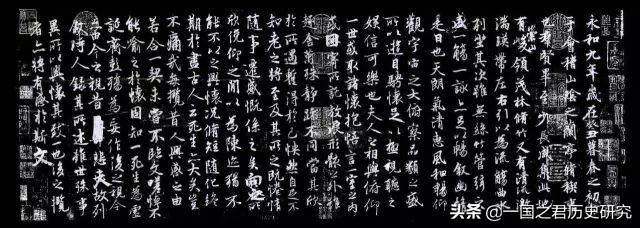 永和九年歲在癸丑暮春之初會
于會稽山陰之蘭亭脩稧事
也群賢畢至少長咸集此地
有崇山峻領茂林脩竹又有清流激
湍暎帶左右引以為流觴曲水
列坐其次雖無絲竹管弦之
盛一觴一詠亦足以暢敘幽情
是日也天朗氣清惠風和暢仰
觀宇宙之大俯察品類之盛
所以遊目騁懷足以極視聽之
娛信可樂也夫人之相與俯仰
一世或取諸懷抱悟言一室之內
或因寄所託放浪形骸之外雖
趣舍萬殊靜躁不同當其欣
於所遇暫得於己怏然自足不
知老之將至及其所之既惓情
隨事遷感慨係之矣向之所
欣俛仰之間以為陳迹猶不
能不以之興懷況脩短隨化終
期於盡古人云死生亦大矣豈
不痛哉每攬昔人興感之由
若合一契未嘗不臨文嗟悼不
能喻之於懷固知一死生為虛
誕齊彭殤為妄作後之視今
亦由今之視昔悲夫故列
敘時人錄其所述雖世殊事
異所以興懷其致一也後之攬
者亦將有感於斯文
头条 @一国之君历史研究